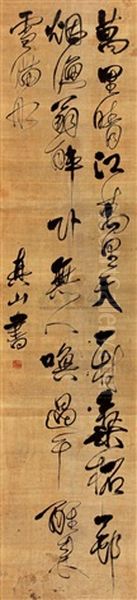 萬里晴江萬里天一村桑柘一邨
烟漁翁醉卧無人喚過午醒來
雪滿船
山書